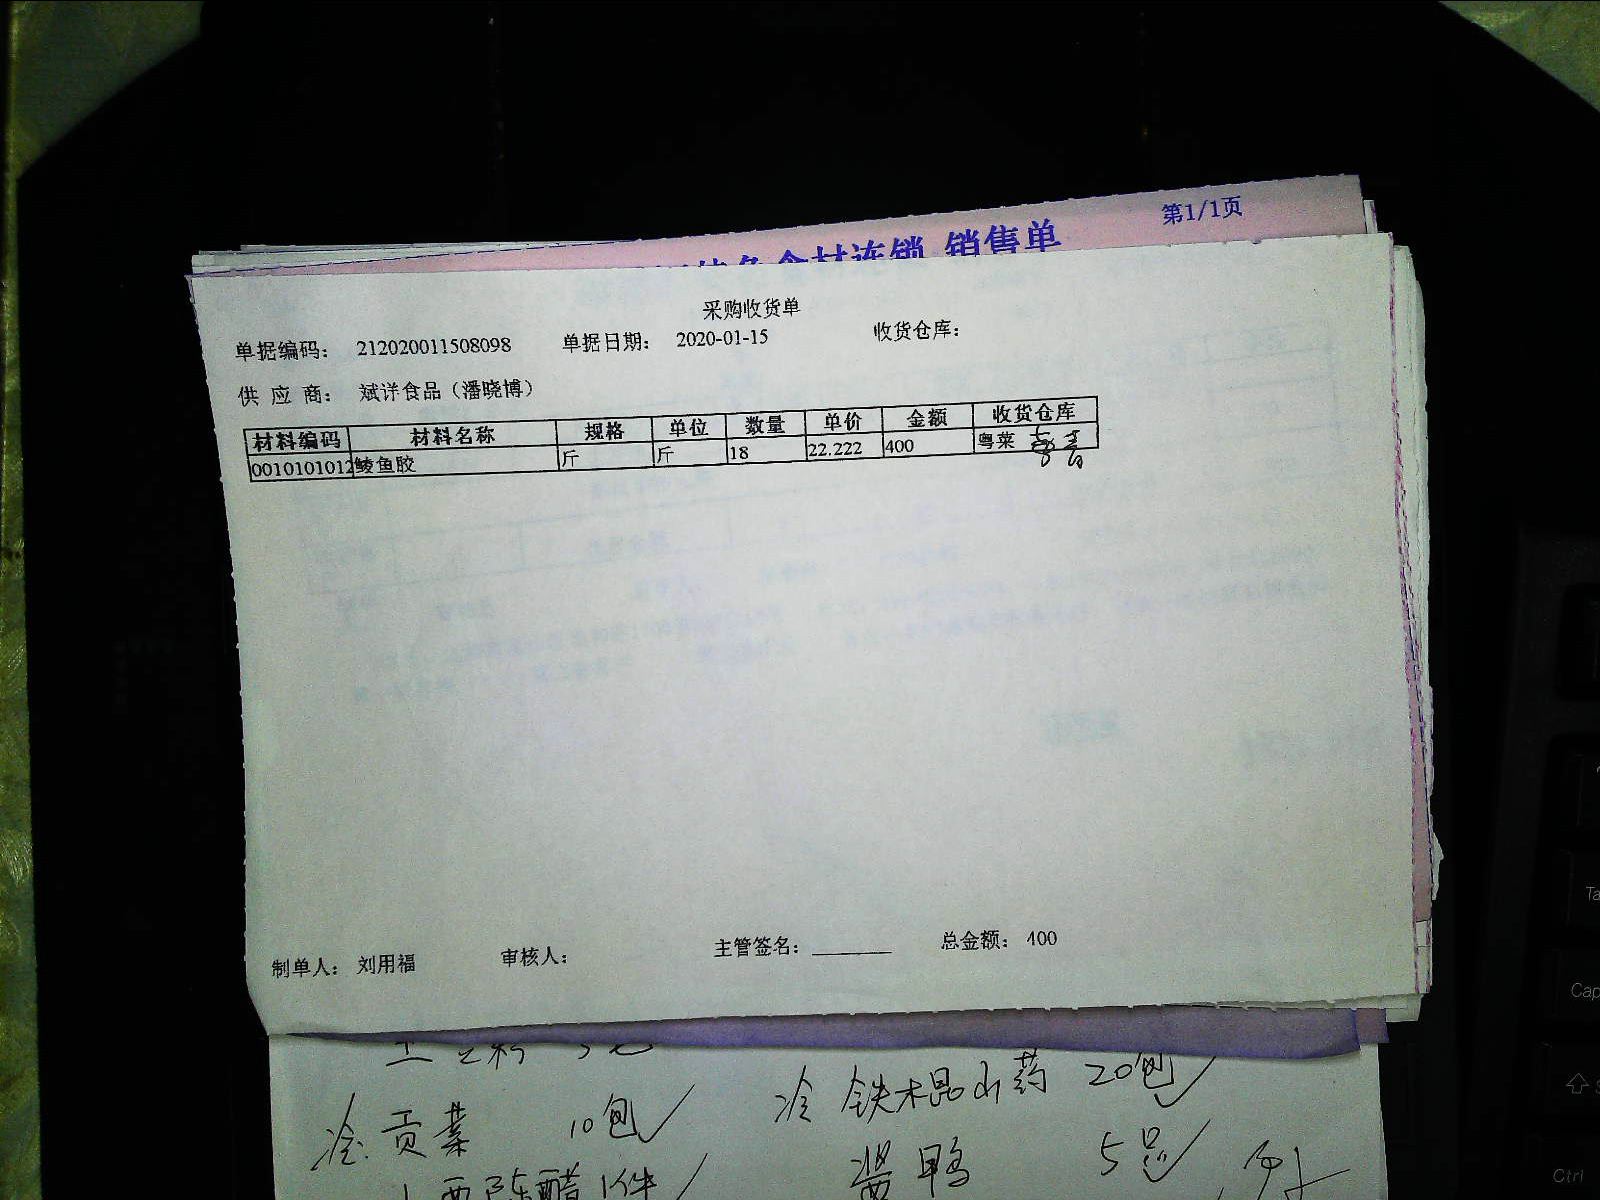 第1/1页
食材连锁 销售单
采购收货单
单据编码： 212020011508098 单据日期： 2020-01-15 收货仓库：
供 应 商： 斌洋食品（潘晓博）
材料编码 材料名称 规格 单位 数量 单价 金额 收货仓库
0010101012 鲮鱼胶 斤 斤 18 22.222 400 粤菜
制单人： 刘用福 审核人： 主管签名：________ 总金额： 400
冷 铁木棍山药 20包
冷 贡菜 10包
酱鸭 5只
西陈醋 1件
Cap
Ctrl